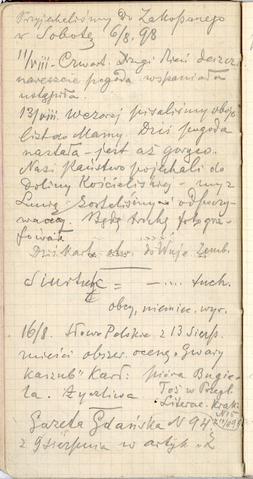 Przyjechaliśmy do Zakopanego
w Sobotę 6/8. 98
11/VIII. Czwart. Drugi dzień deszcz,
nareszcie pogoda wspaniała
nastąpiła.
13/VIII wczoraj pisaliśmy oboje
list do Mamy. Dziś pogoda
nastała - jest aż gorąco.
Nasi Państwo pojechali do
Doliny Kościeliskiej - my z
Lunią zostaliśmy odpoczy-
wać. Będę trochę fotogra-
fować
Dziś kartę do Wuja Zemb.
= -.... tuch.
obcy, niemiec. wyr.
16/8. Słowo Polskie z 13 Sierp.
mieści obszer. ocenę "Gwary
kaszub" Karł: pióra Bugie-
la. Życzliwa Toż w Przegl.
Literac. Krak.
N 15
Gazeta Gdańska N 94
z 9 sierpnia w artyk. "Z